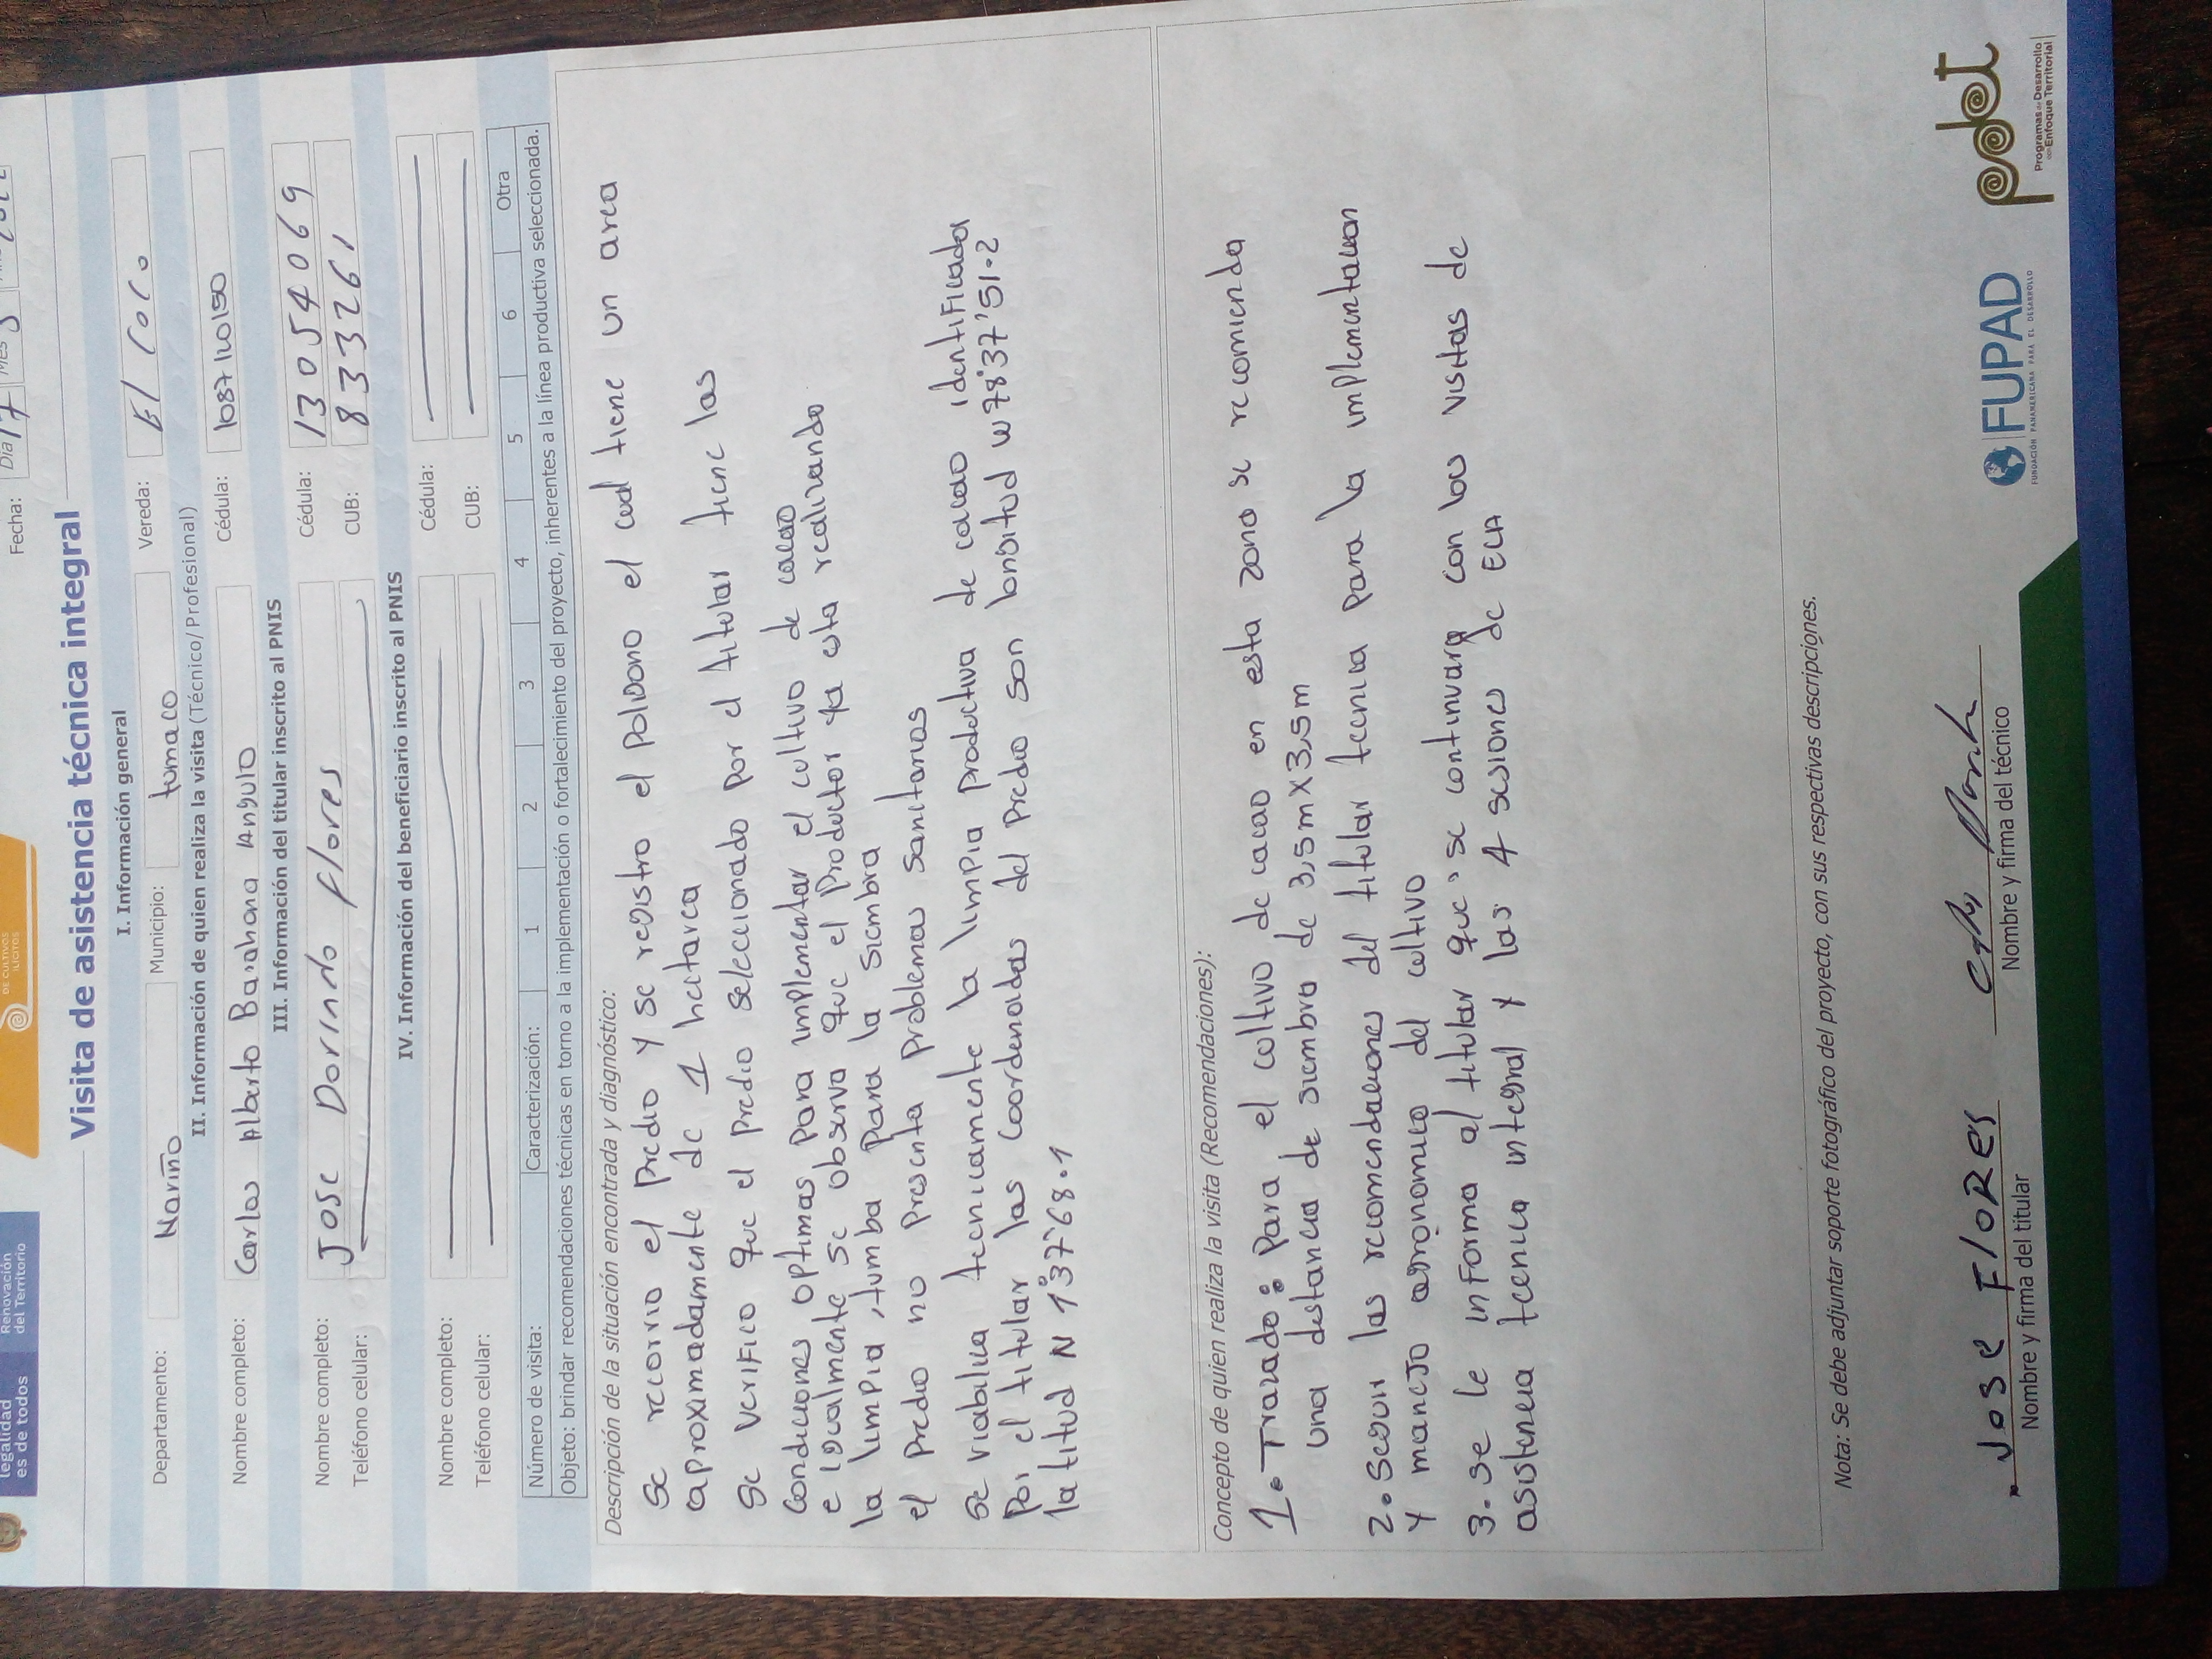 DE CULTIVOS
ILÍCITOS
legalidad
es de todos
Renovación
del Territorio
Fecha: Día 17 Mes 5
Visita de asistencia técnica integral
I. Información general
Departamento: Nariño Municipio: tumaco Vereda: El Coco
II. Información de quien realiza la visita (Técnico/Profesional)
Nombre completo: Carlos Alberto Barahona Angulo Cédula:
III. Información del titular inscrito al PNIS
Nombre completo: Jose Dorindo Flores Cédula: 13054069
Teléfono celular: CUB: 833261
IV. Información del beneficiario inscrito al PNIS
Nombre completo: Cédula:
Teléfono celular: CUB:
Número de visita: Caracterización: 1 2 3 4 5 6 Otra
Objeto: brindar recomendaciones técnicas en torno a la implementación o fortalecimiento del proyecto, inherentes a la línea productiva seleccionada.
Descripción de la situación encontrada y diagnóstico:
Se recorrio el predio y se registro el poligono el cual tiene un area
aproximadamente de 1 hectarea
Se verifico que el predio seleccionado por el titular tiene las
condiciones optimas para implementar el cultivo de cacao
e igualmente se observa que el productor ya esta realizando
la limpia, tumba para la siembra
el predio no presenta problemas sanitarios
se viabiliza tecnicamente la limpia productiva de cacao identificada
por el titular las coordenadas del predio son longitud w78°37'51.2
latitud N 1°37'68.1
Concepto de quien realiza la visita (Recomendaciones):
1. Trazado: Para el cultivo de cacao en esta zona se recomienda
una distancia de siembra de 3,5m X 3,5m
2. Segun las recomendaciones del titular tecnica para la implementacion
y manejo agronomico del cultivo
3. se le informa al titular que se continuara con las visitas de
asistencia tecnica integral y las 4 sesiones de ECA
Nota: Se debe adjuntar soporte fotográfico del proyecto, con sus respectivas descripciones.
Jose FloRes
Nombre y firma del titular
Nombre y firma del técnico
FUPAD
FUNDACIÓN PANAMERICANA PARA EL DESARROLLO
pdet
Programas de Desarrollo
con Enfoque Territorial